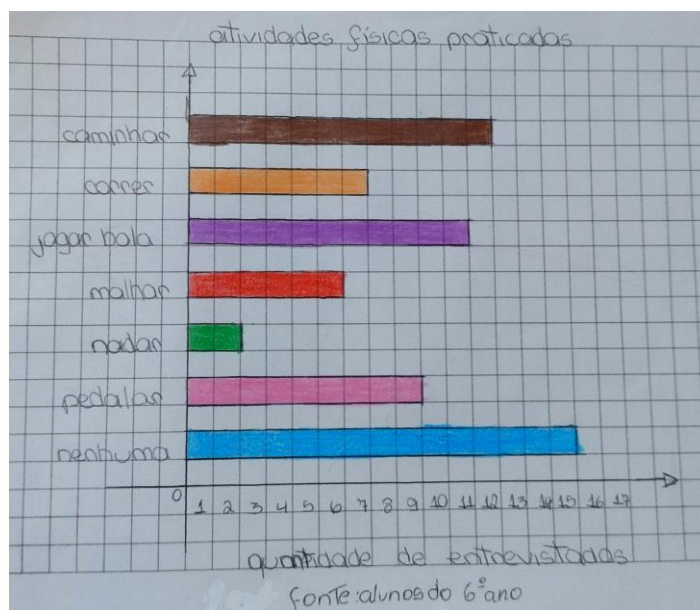 atividades físicas praticadas
caminhar
correr
jogar bola
malhar
nadar
pedalar
nenhuma
0 1 2 3 4 5 6 7 8 9 10 11 12 13 14 15 16 17
quantidade de entrevistados
fonte: alunos do 6º ano